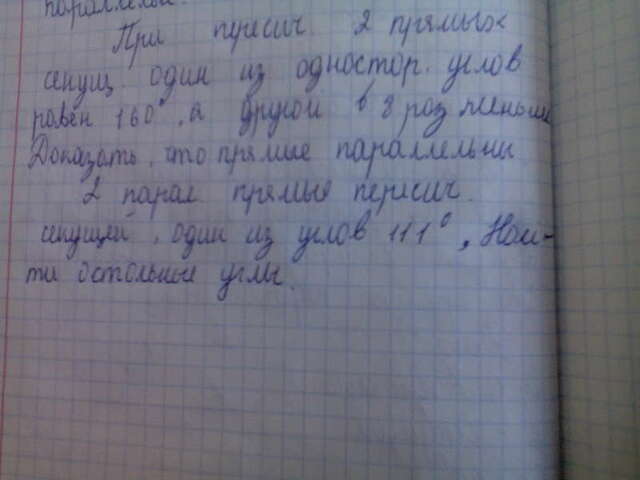 параллельн.
При пересич. 2 прямых
секущ. один из одностор. углов
равен 160°, а другой в 8 раз меньше
Доказать, что прямые параллельны
2 парал прямые пересич.
секущей, один из углов 111°, Най-
ти остольные углы.